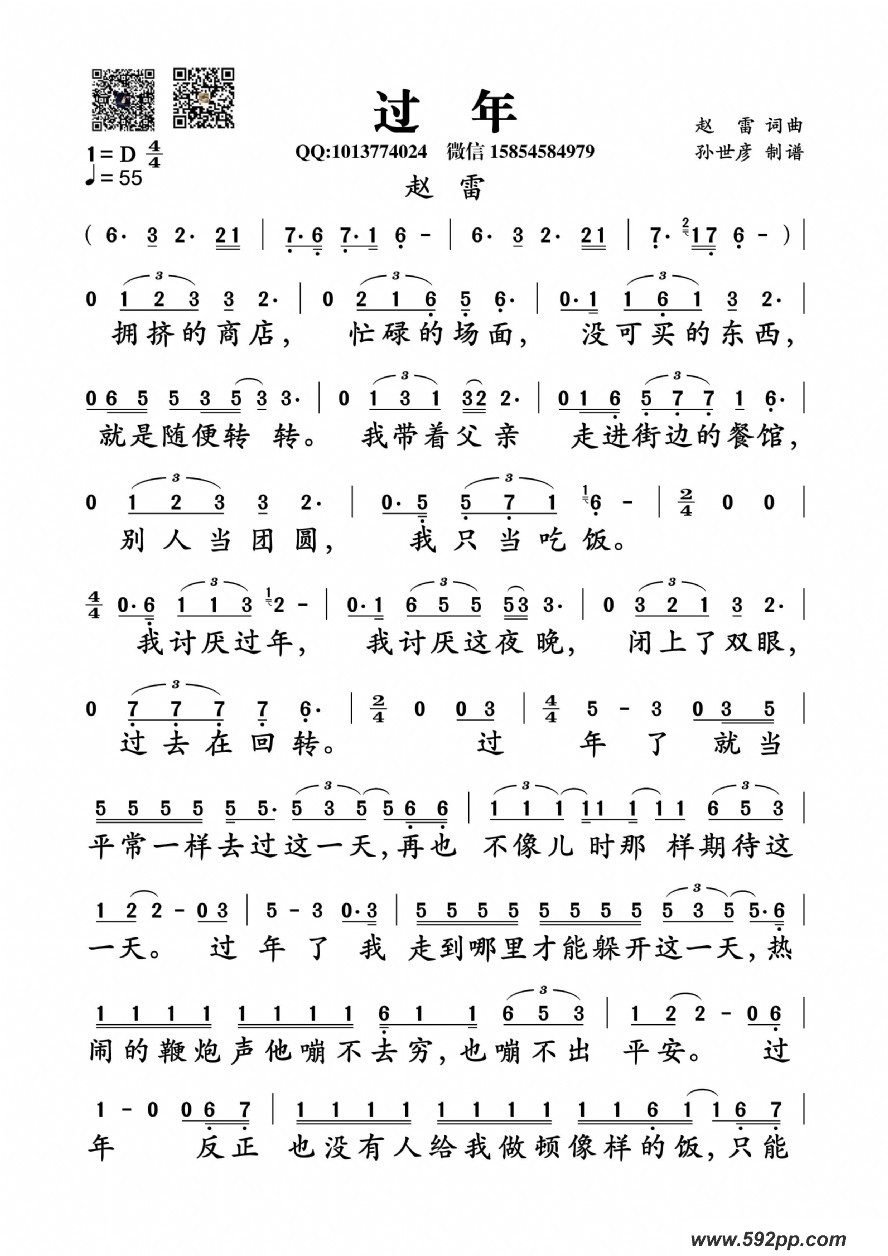 过 年
赵 雷 词曲
1=D 4/4
QQ:1013774024 微信 15854584979
孙世彦 制谱
♩=55
赵 雷
( 6· 3 2· 21 | 7·6 7·1 6 - | 6· 3 2· 21 | 7· 2 17 6 - ) |
0 1 2 3 3 2· | 0 2 1 6 5 6· | 0·1 1 6 1 3 2· |
拥挤的商店, 忙碌的场面, 没可买的东西,
0 6 5 5 3 5 3 3· | 0 1 3 1 32 2· | 0 1 6 5 7 7 1 6· |
就是随便转 转。 我带着父 亲 走进街边的餐馆,
0 1 2 3 3 2· | 0·5 5 7 1 1 6 - | 2/4 0 0 |
别 人 当 团 圆, 我 只 当 吃 饭。
4/4 0·6 1 1 3 1 2 - | 0·1 6 5 5 53 3· | 0 3 2 1 3 2· |
我讨厌过年, 我讨厌这夜 晚, 闭上了双眼,
0 7 7 7 7 6· | 2/4 0 0 3 | 4/4 5 - 3 0 3 5 |
过 去 在 回 转。 过 年 了 就 当
5 5 5 5 5 5· 5 3 5 5 6 6 | 1 1 1 11 1 1 6 5 3 |
平常一样去过这一天,再也 不像儿 时那 样期待这
1 2 2 - 0 3 | 5 - 3 0·3 | 5 5 5 5 5 5 5 5 5 3 5 5·6 |
一天。 过 年 了 我 走到哪里才能躲开这一天,热
1 1 1 1 1 1 1 1 6 1 1 6 5 3 | 1 2 2 - 0 6 |
闹的鞭炮声他嘣不去穷,也嘣不出 平安。 过
1 - 0 0 6 7 | 1 1 1 1 1 1 1 1 1 1 6 1 1 6 7 |
年 反正 也没有人给我做顿像样的饭,只能
www.592pp.com